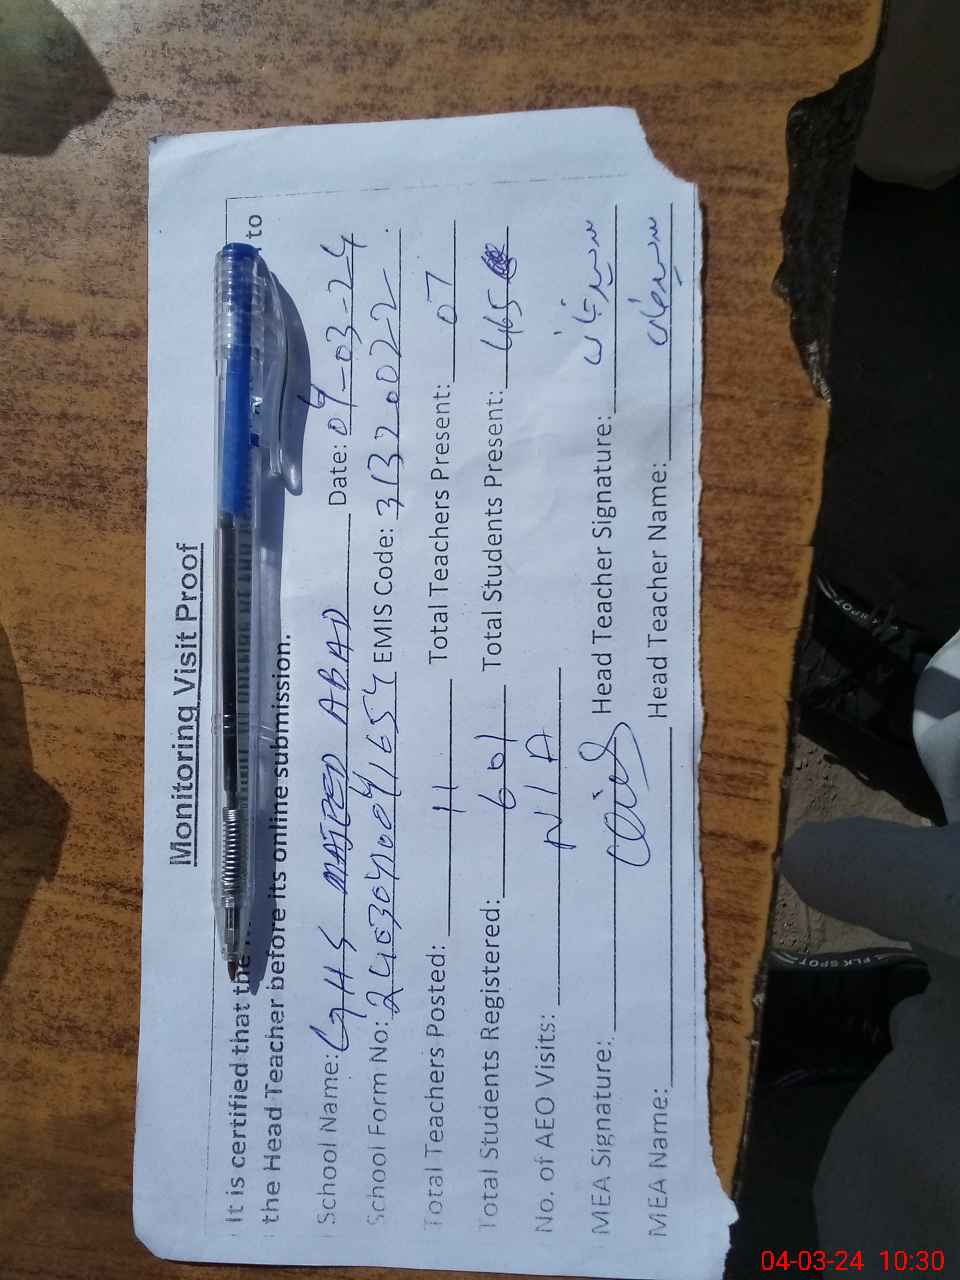 Monitoring Visit Proof
It is certified that the to
the Head Teacher before its online submission.
School Name: GHS MAJEED ABAD Date: 04-03-24
School Form No: 2403040841654 EMIS Code: 31320022
Total Teachers Posted: 11 Total Teachers Present: 07
Total Students Registered: 601 Total Students Present: 465
No. of AEO Visits: N/A
MEA Signature: Head Teacher Signature:
MEA Name: Head Teacher Name:
FLK SPOT
04-03-24 10:30